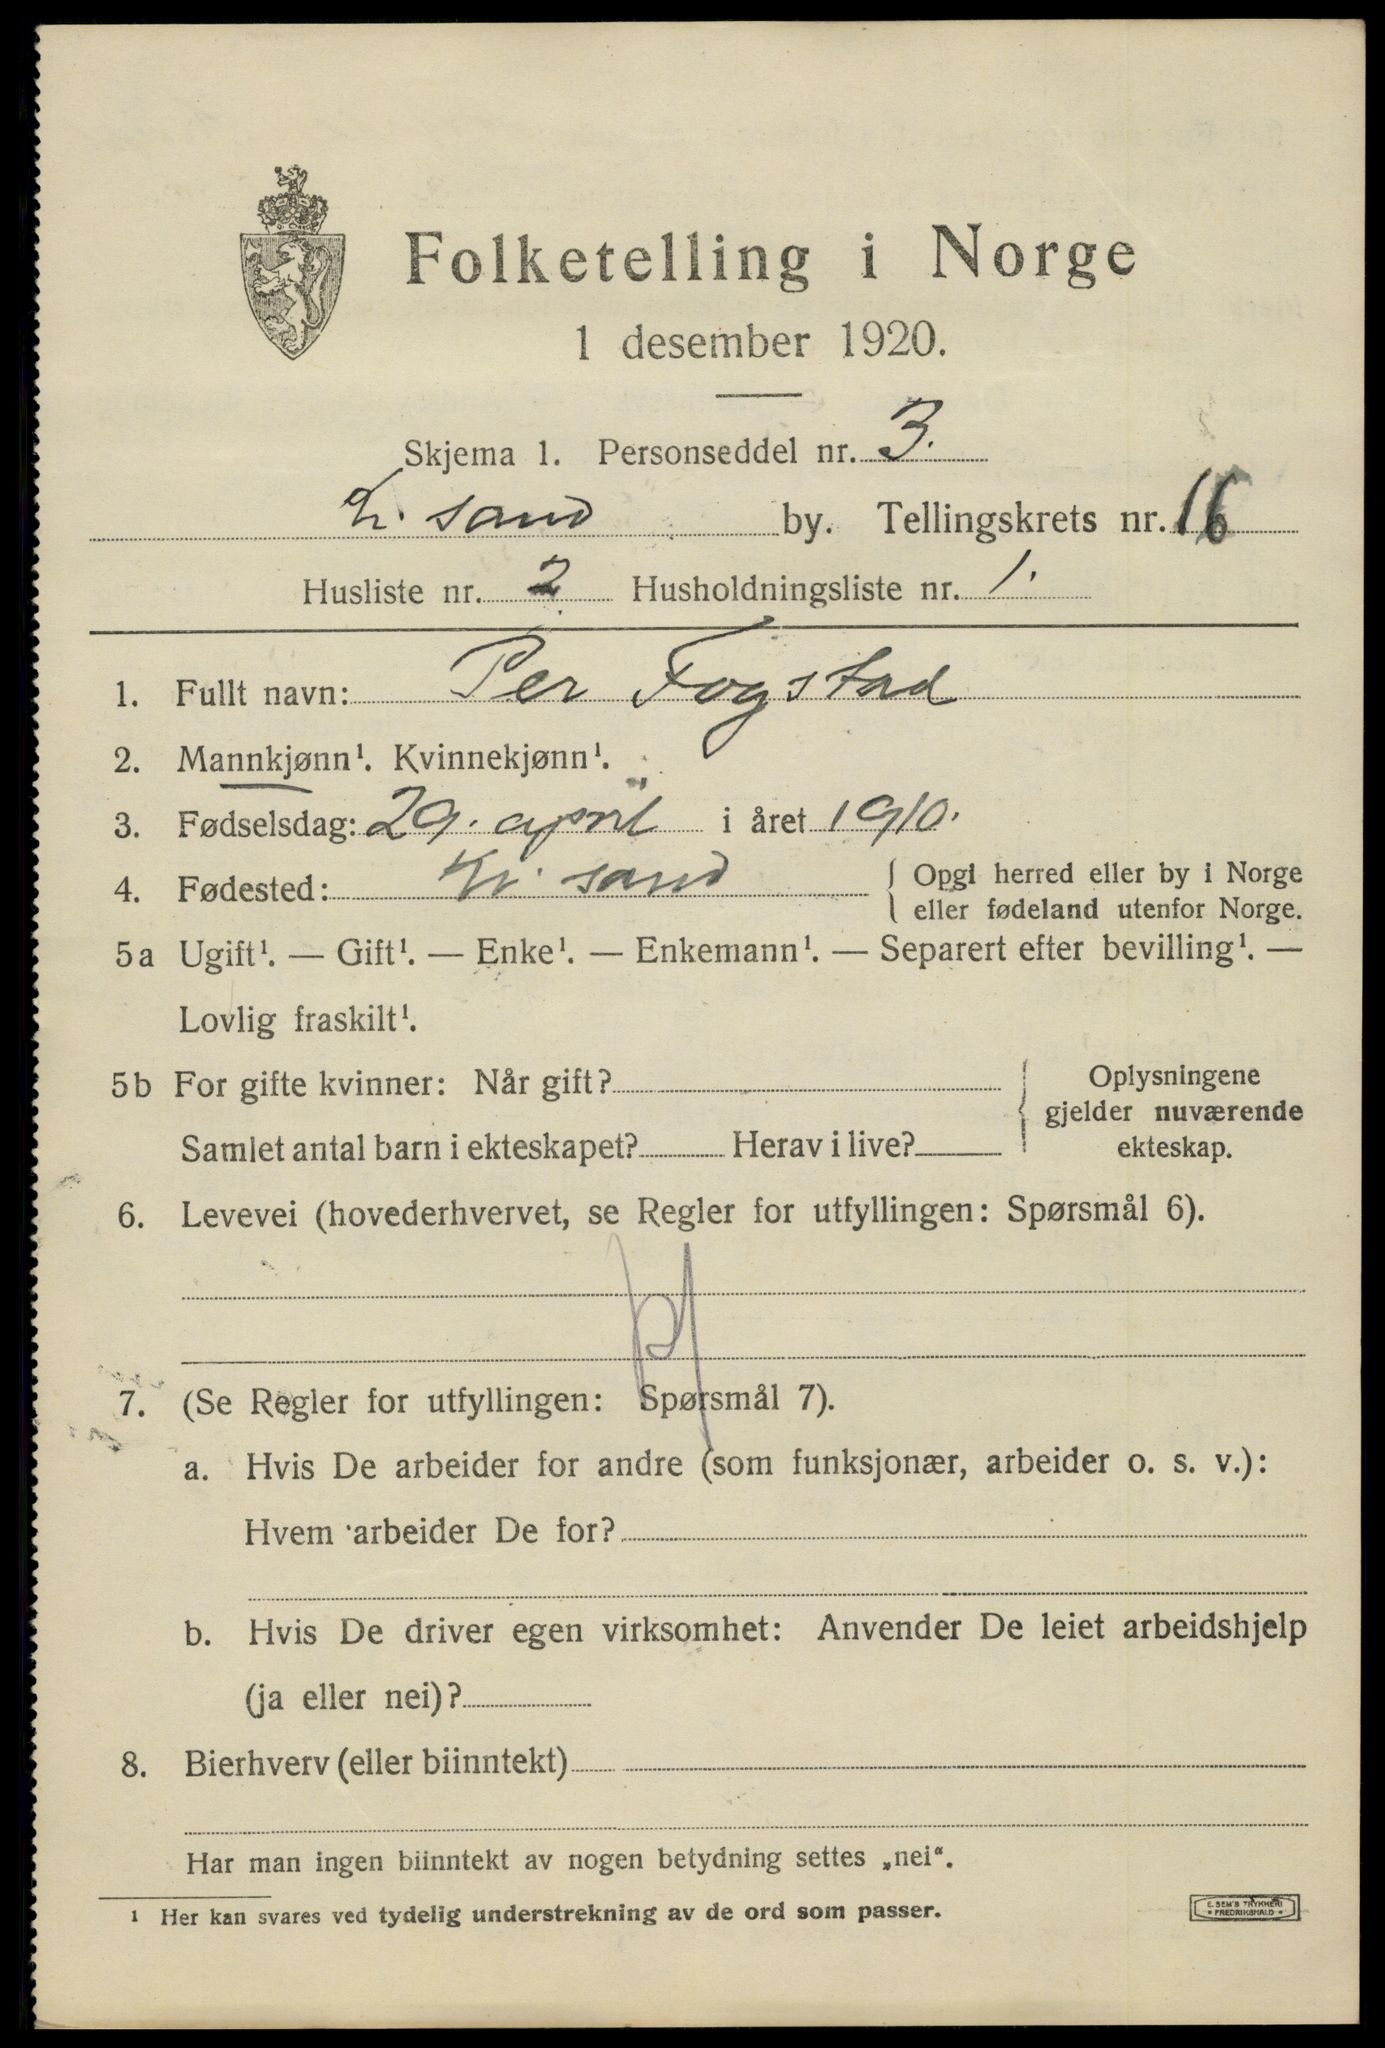 Folketelling i Norge
1 desember 1920.
Skjema 1. Personseddel nr. 3.
Kr. sand by. Tellingskrets nr. 16
Husliste nr. 2 Husholdningsliste nr. 1.
1. Fullt navn: Per Fogstad
2. Mannkjønn¹. Kvinnekjønn¹.
3. Fødselsdag: 29. april i året 1910.
4. Fødested: Kr. sand { Opgi herred eller by i Norge
eller fødeland utenfor Norge.
5a Ugift¹. — Gift¹. — Enke¹. — Enkemann¹. — Separert efter bevilling¹. —
Lovlig fraskilt¹.
5b For gifte kvinner: Når gift? { Oplysningene
gjelder nuværende
Samlet antal barn i ekteskapet? Herav i live? ekteskap.
6. Levevei (hovederhvervet, se Regler for utfyllingen: Spørsmål 6).
7. (Se Regler for utfyllingen: Spørsmål 7).
a. Hvis De arbeider for andre (som funksjonær, arbeider o. s. v.):
Hvem arbeider De for?
b. Hvis De driver egen virksomhet: Anvender De leiet arbeidshjelp
(ja eller nei)?
8. Bierhverv (eller biinntekt)
Har man ingen biinntekt av nogen betydning settes „nei“.
¹ Her kan svares ved tydelig understrekning av de ord som passer.
E. SEM'S TRYKKERI
FREDRIKSHALD